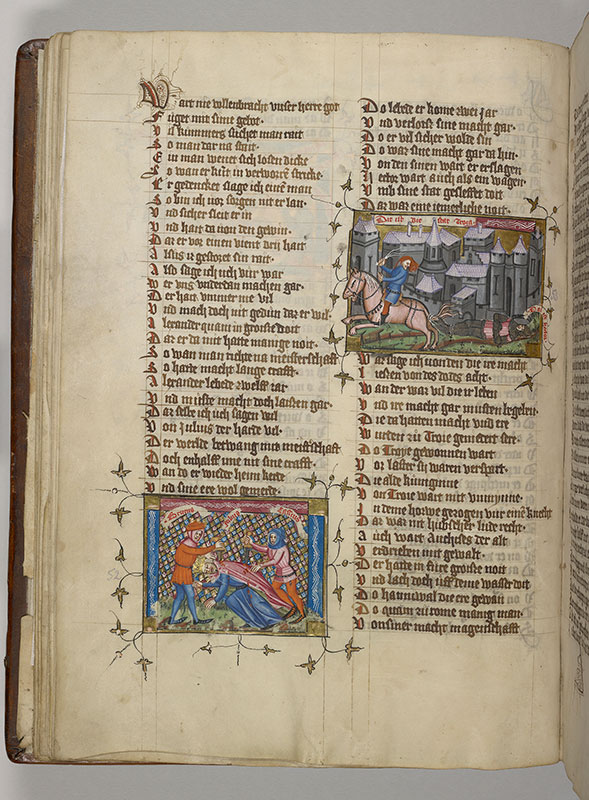 Wart nie vollenbracht vnser herre got
Fuget mit sime gebot
Vs kummers stichet man rait
So man dar na
Ein man wenet sich losen dicke
So wan er in stricke
Er gedencket slage ich eine man
So bin ich vor sorgen nit er lan
Vnd sicher er in
Vnd hait da von den gewin
Dar er vor einen vient den hait
Alsus is gestoret sin rait
Also sage ich uch vur war
Wer vns vnderdan machen gar
Der hait vmmer me vil
Vnd mach doch nit gedun daz er wil
Alexander quam in groisse noit
Dar er da mit hatte manige noit
So wan man richte na meisterschaft
So harte macht lange crafft
Alexander lebede zwelff iar
Vnd muste macht doch laissen gar
Dar selbe ich uch sagen wil
Von Julius der harde vil
Der werlde betwang mit meisterschaft
Doch enhalff ime nit sine crafft
Wan do er wieder heim kerde
Vnd sine ere wol gemerde
Do lebede er kome zwei jar
Vnd verlois sine macht gar
Do er vil sicher wolde sin
Do war sine macht gar da hin
Von den sinen wart er erslagen
Hector wart auch als ein wagen
Vmb sine stat gesleffet doit
Daz war eine iemerliche noit
Dit ist die stat Troya
War sage ich von den die ire macht
Liessen von des dodes acht
Wander war vil die ir leben
Vnd ire macht gar musten begeben
Die da hatten macht vnd ere
Wurden zu Troie gemindert sere
Do Troye gewonnen wart
Vor laster sij waren verspart
Die alde kuniginne
Von Troie wart mit vnminne
In deme houe gezogen vur eine knecht
Daz war nit hubscher lude recht
Auch wart Anchises der alt
Verdrieben mit gewalt
Der hatte in sure groisse noit
Vnd lach doch uff deme wasser doit
Do hannibal die ere gewan
Do quam zu rome manig man
Von siner macht in angenschafft